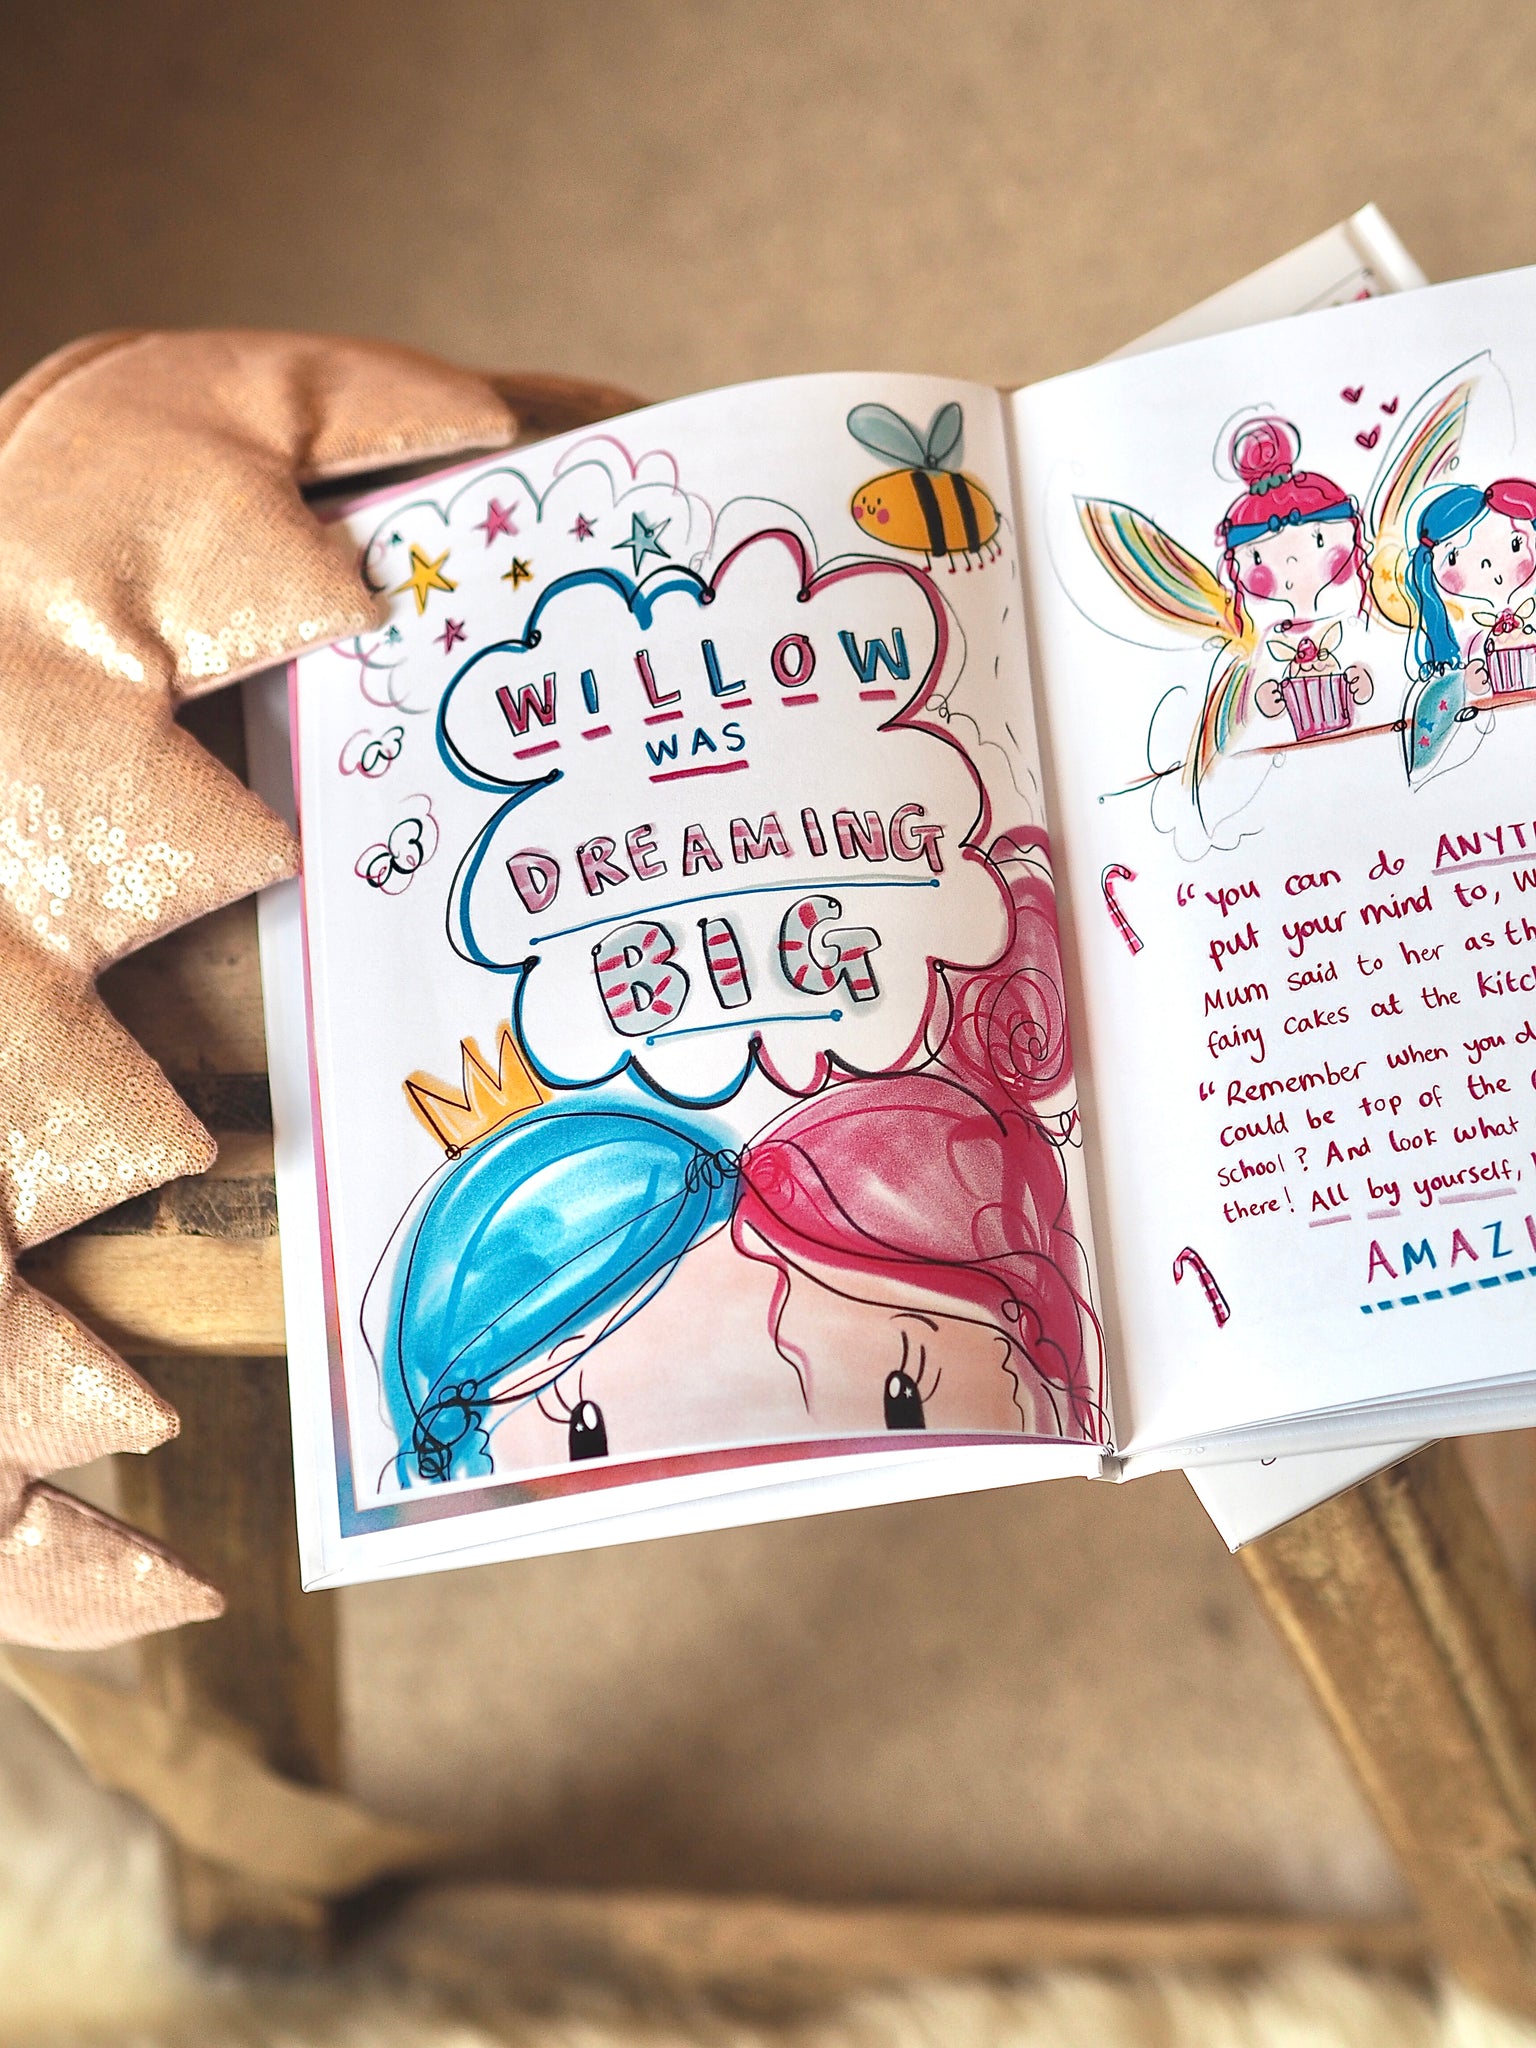 WILLOW
WAS
DREAMING
BIG
"you can do
put your mind to,
Mum said to her as
fairy cakes at the
"Remember when you
could be top of the
school? And look what
there! All by yourself,